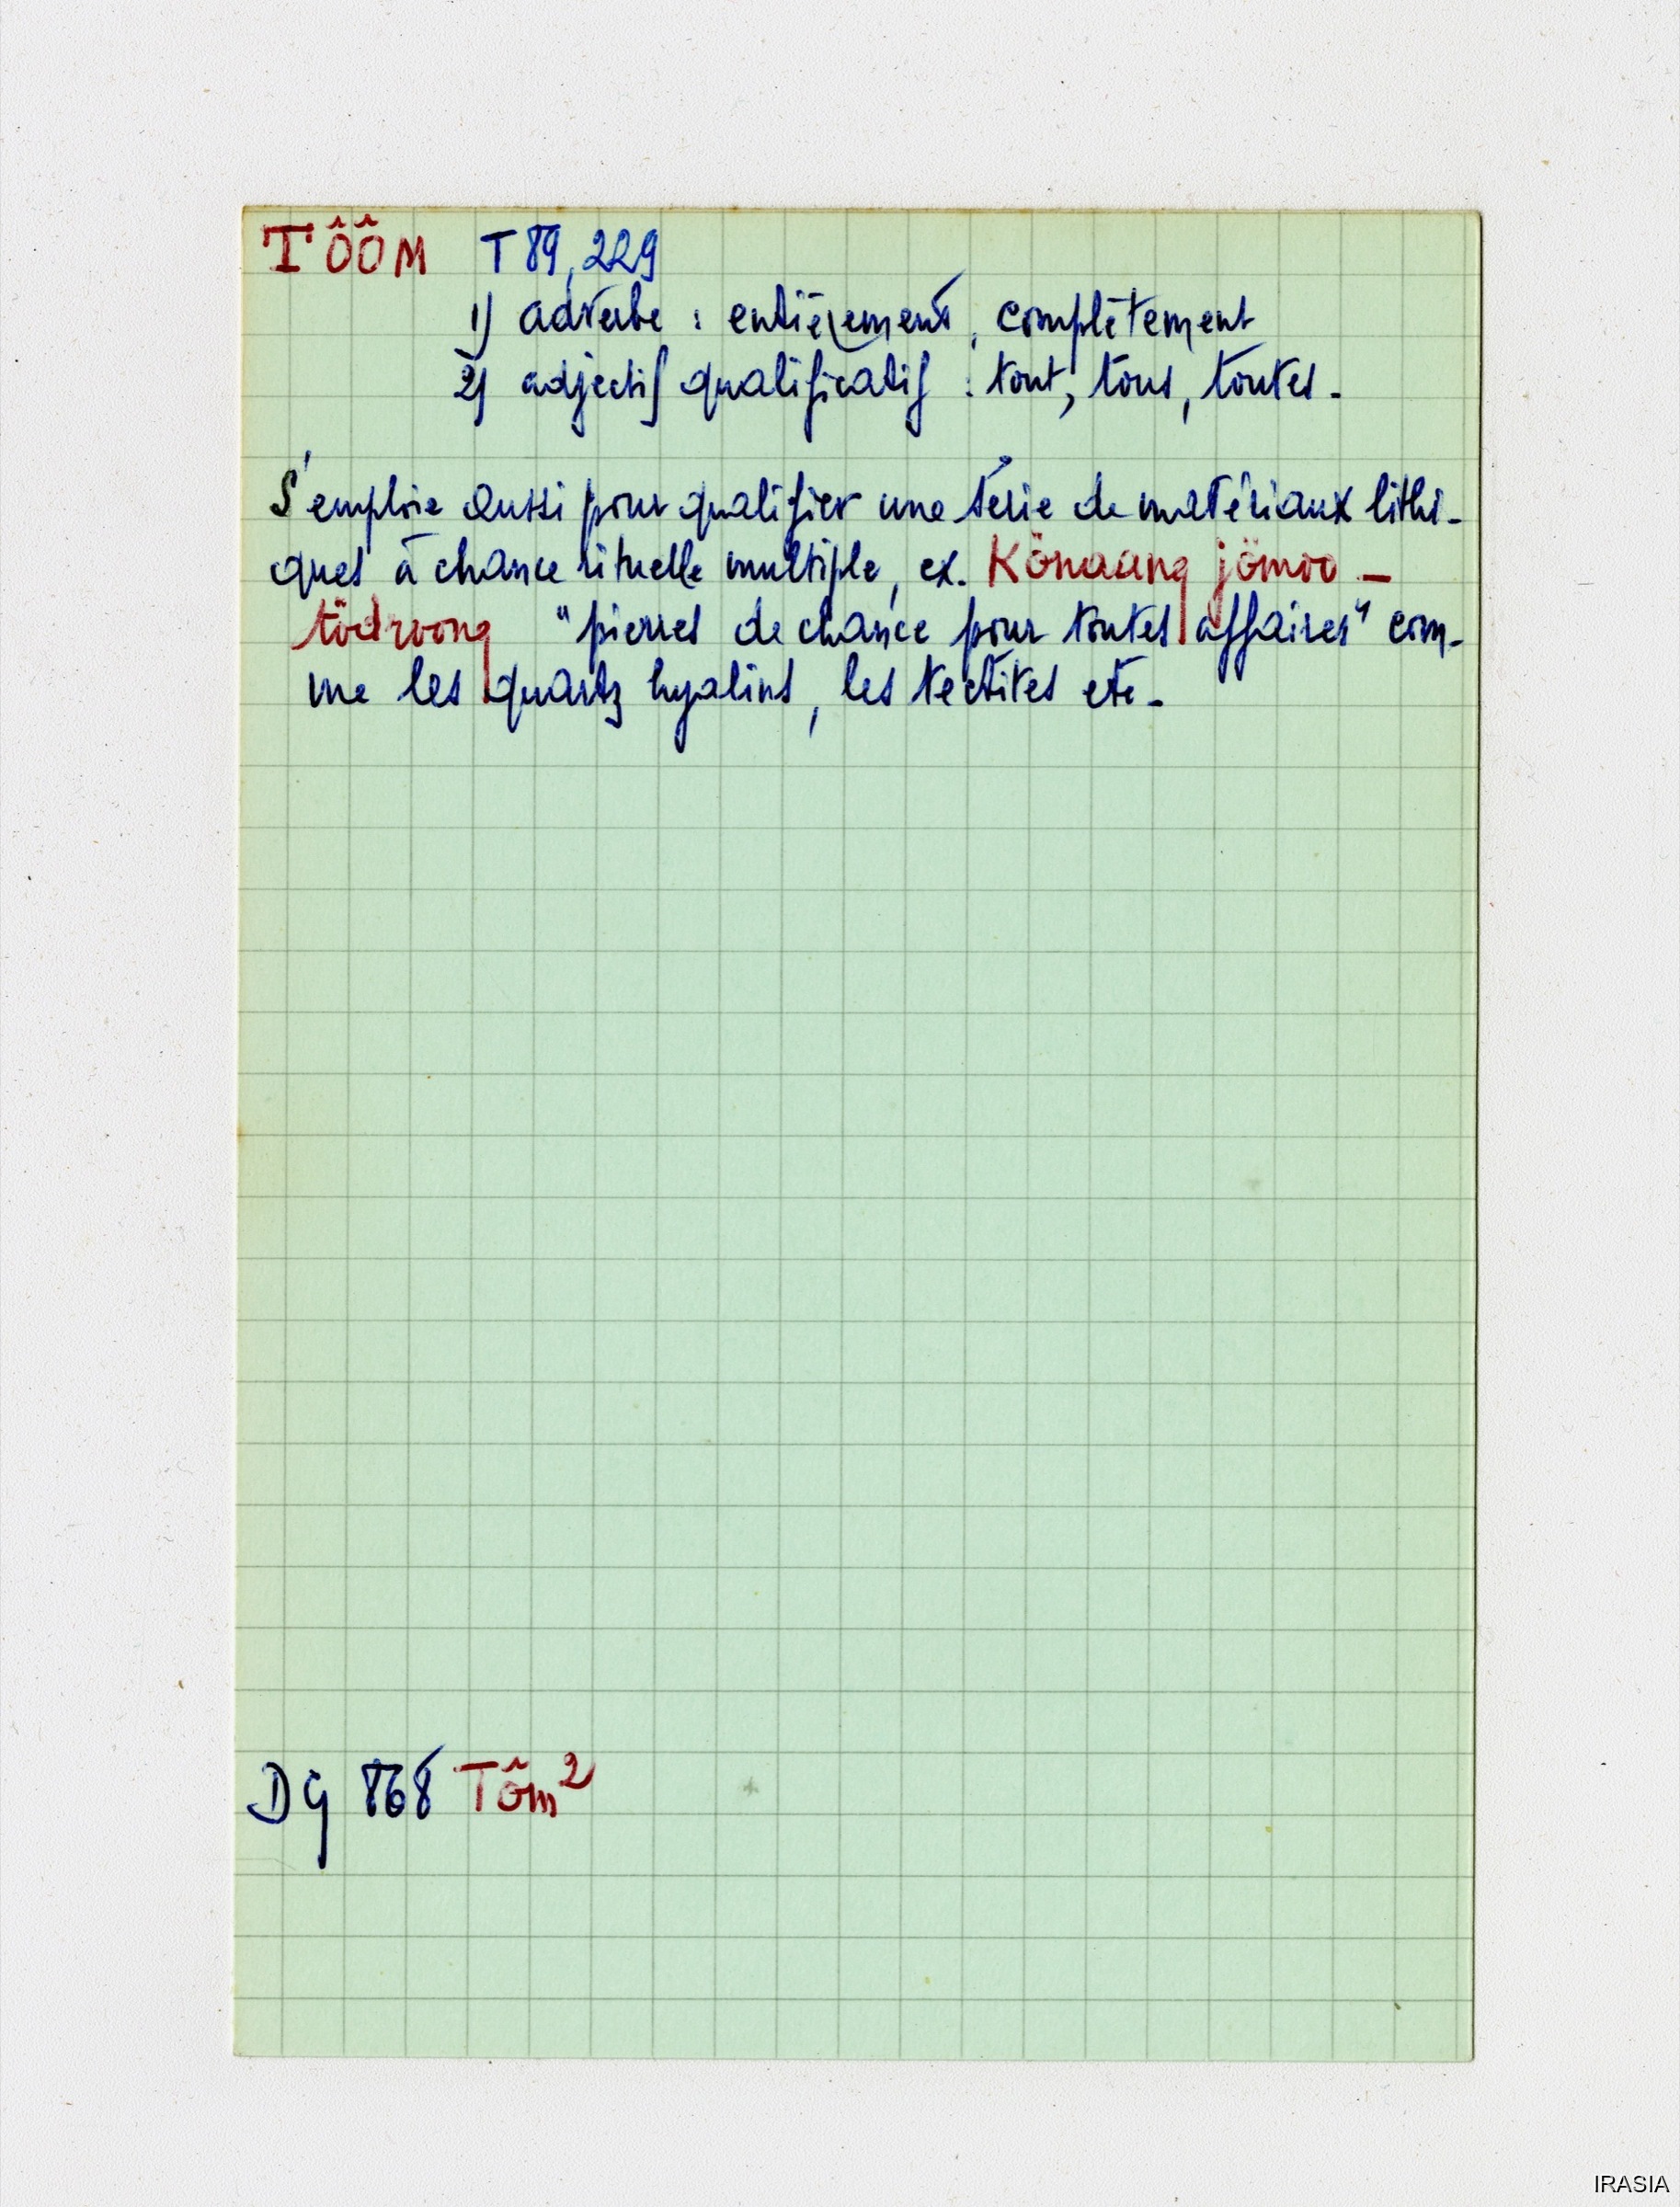 TÔÔM T 89, 229
1) adverbe : entièrement, complètement
2) adjectif qualificatif : tout, tous, toutes.
S'emploie aussi pour qualifier une série de matériaux lithi-
ques à chance rituelle multiple, ex. Könaang jömoo -
tödroong "pierres de chance pour toutes affaires" com-
me les quartz hyalins, les tectites etc.
DG 868 Tôm²
IRASIA